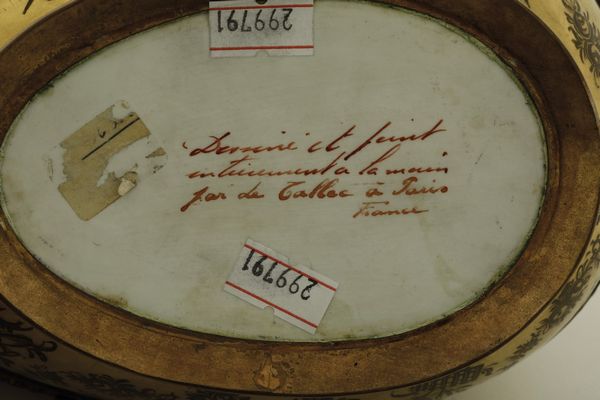 299791
Dessiné et peint
entièrement à la main
par de Tallec à Paris
France
299791